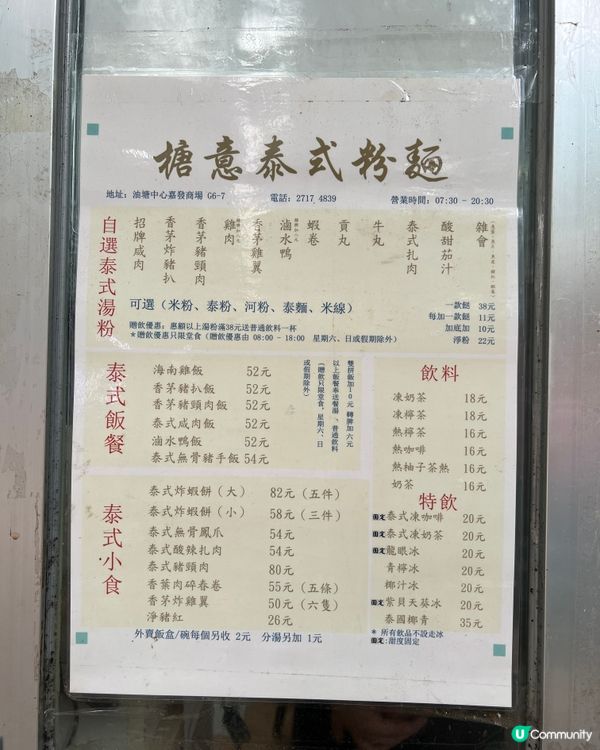 榶意泰式粉麵
地址: 油塘中心嘉發商場 G6-7 電話: 2717 4839 營業時間: 07:30 - 20:30
自選泰式湯粉
招牌咸肉
香茅炸豬扒
香茅豬頸肉
雞肉
香茅雞翼
滷水鴨
蝦卷
貢丸
牛丸
泰式扎肉
酸甜茄汁
雜會
可選 (米粉、泰粉、河粉、泰麵、米線)
一款餸 38元
每加一款餸 11元
加底加 10元
淨粉 22元
贈飲優惠: 惠顧以上湯粉滿38元送普通飲料一杯
*贈飲優惠只限堂食 (贈飲優惠由 08:00 - 18:00 星期六、日或假期除外)
泰式飯餐
海南雞飯 52元
香茅豬扒飯 52元
香茅豬頸肉飯 52元
泰式咸肉飯 52元
滷水鴨飯 52元
泰式無骨豬手飯 54元
雙拼飯加10元 轉脾加六元
以上飯餐奉送餐湯、普通飲料
(贈飲只限堂食,星期六、日
或假期除外)
泰式小食
泰式炸蝦餅 (大) 82元 (五件)
泰式炸蝦餅 (小) 58元 (三件)
泰式無骨鳳爪 54元
泰式酸辣扎肉 54元
泰式豬頸肉 80元
香葉肉碎春卷 55元 (五條)
香茅炸雞翼 50元 (六隻)
淨豬紅 26元
外賣飯盒/碗每個另收 2元 分湯另加 1元
飲料
凍奶茶 18元
凍檸茶 18元
熱檸茶 16元
熱咖啡 16元
熱柚子茶熱 16元
奶茶 16元
特飲
固定 泰式凍咖啡 20元
固定 泰式凍奶茶 20元
固定 龍眼冰 20元
青檸冰 20元
椰汁冰 20元
固定 紫貝天葵冰 20元
泰國椰青 35元
* 所有飲品不設走冰
固定:甜度固定
U Community